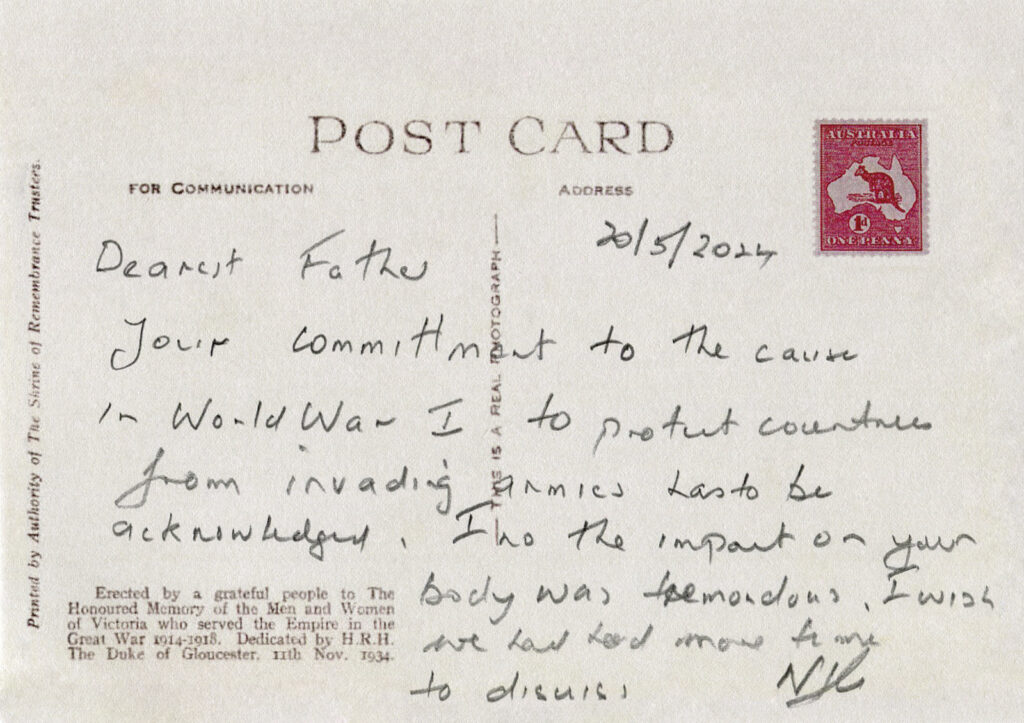 POST CARD
FOR COMMUNICATION
ADDRESS
AUSTRALIA
POSTAGE
1d
ONE PENNY
20/5/2024
Dearest Father
Your committment to the cause
in World War I to protect countries
from invading armies has to be
acknowledged. Tho the impact on your
body was tremondous. I wish
we had had more time
to discuss
THIS IS A REAL PHOTOGRAPH
Printed by Authority of The Shrine of Remembrance Trustees.
Erected by a grateful people to The
Honoured Memory of the Men and Women
of Victoria who served the Empire in the
Great War 1914-1918. Dedicated by H.R.H.
The Duke of Gloucester, 11th Nov. 1934.